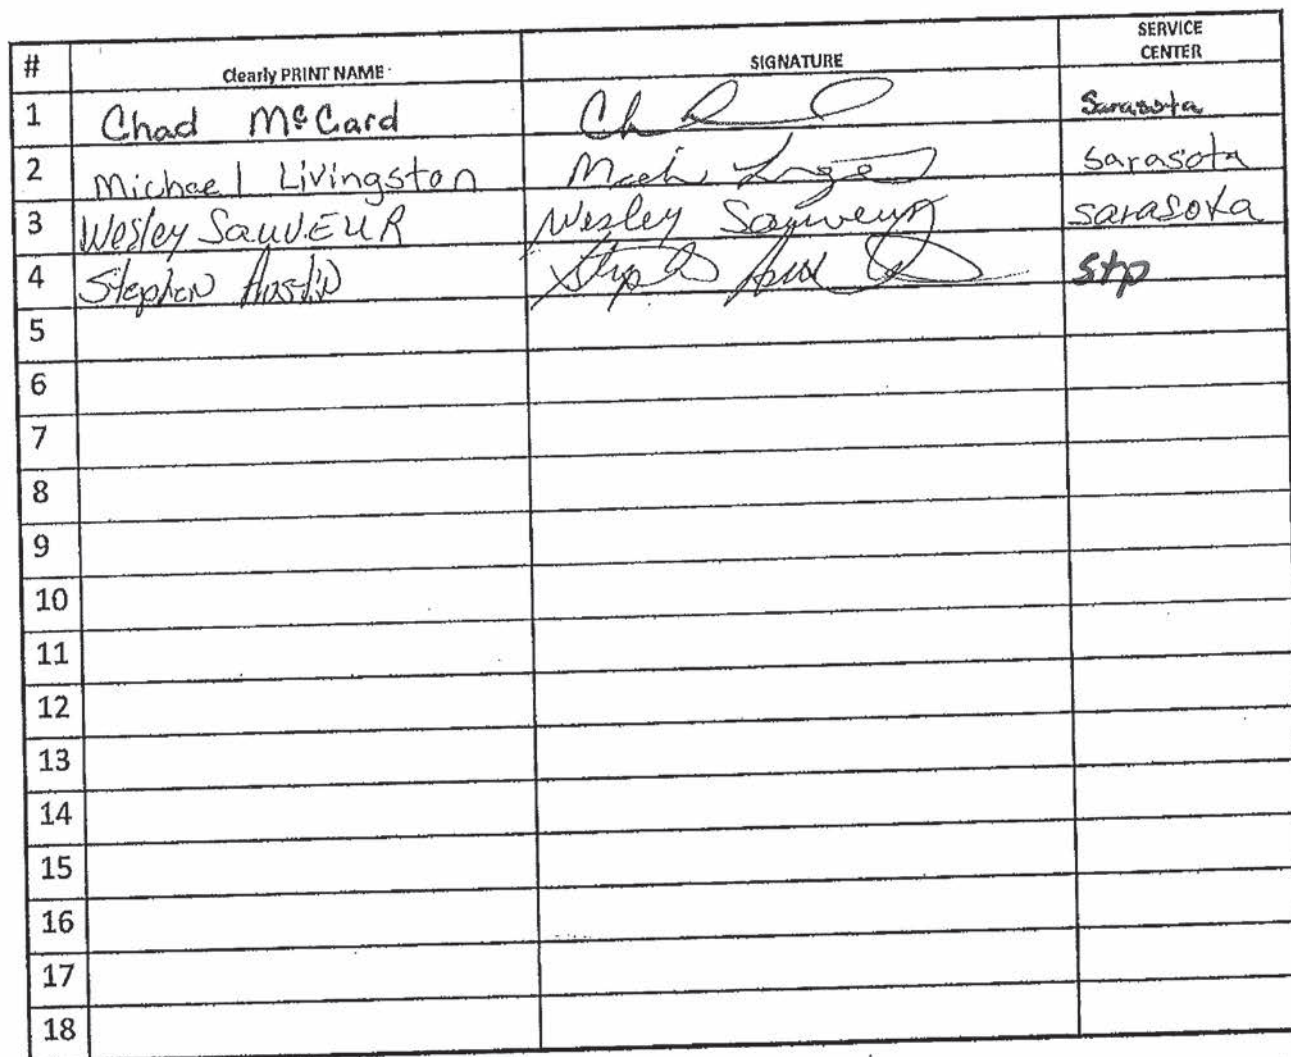 # Clearly PRINT NAME SIGNATURE SERVICE CENTER
1 Chad McCard Sarasota
2 Michael Livingston sarasota
3 Wesley SauvEUR Wesley Sauveur sarasota
4 Stephen Austin Stp
5
6
7
8
9
10
11
12
13
14
15
16
17
18